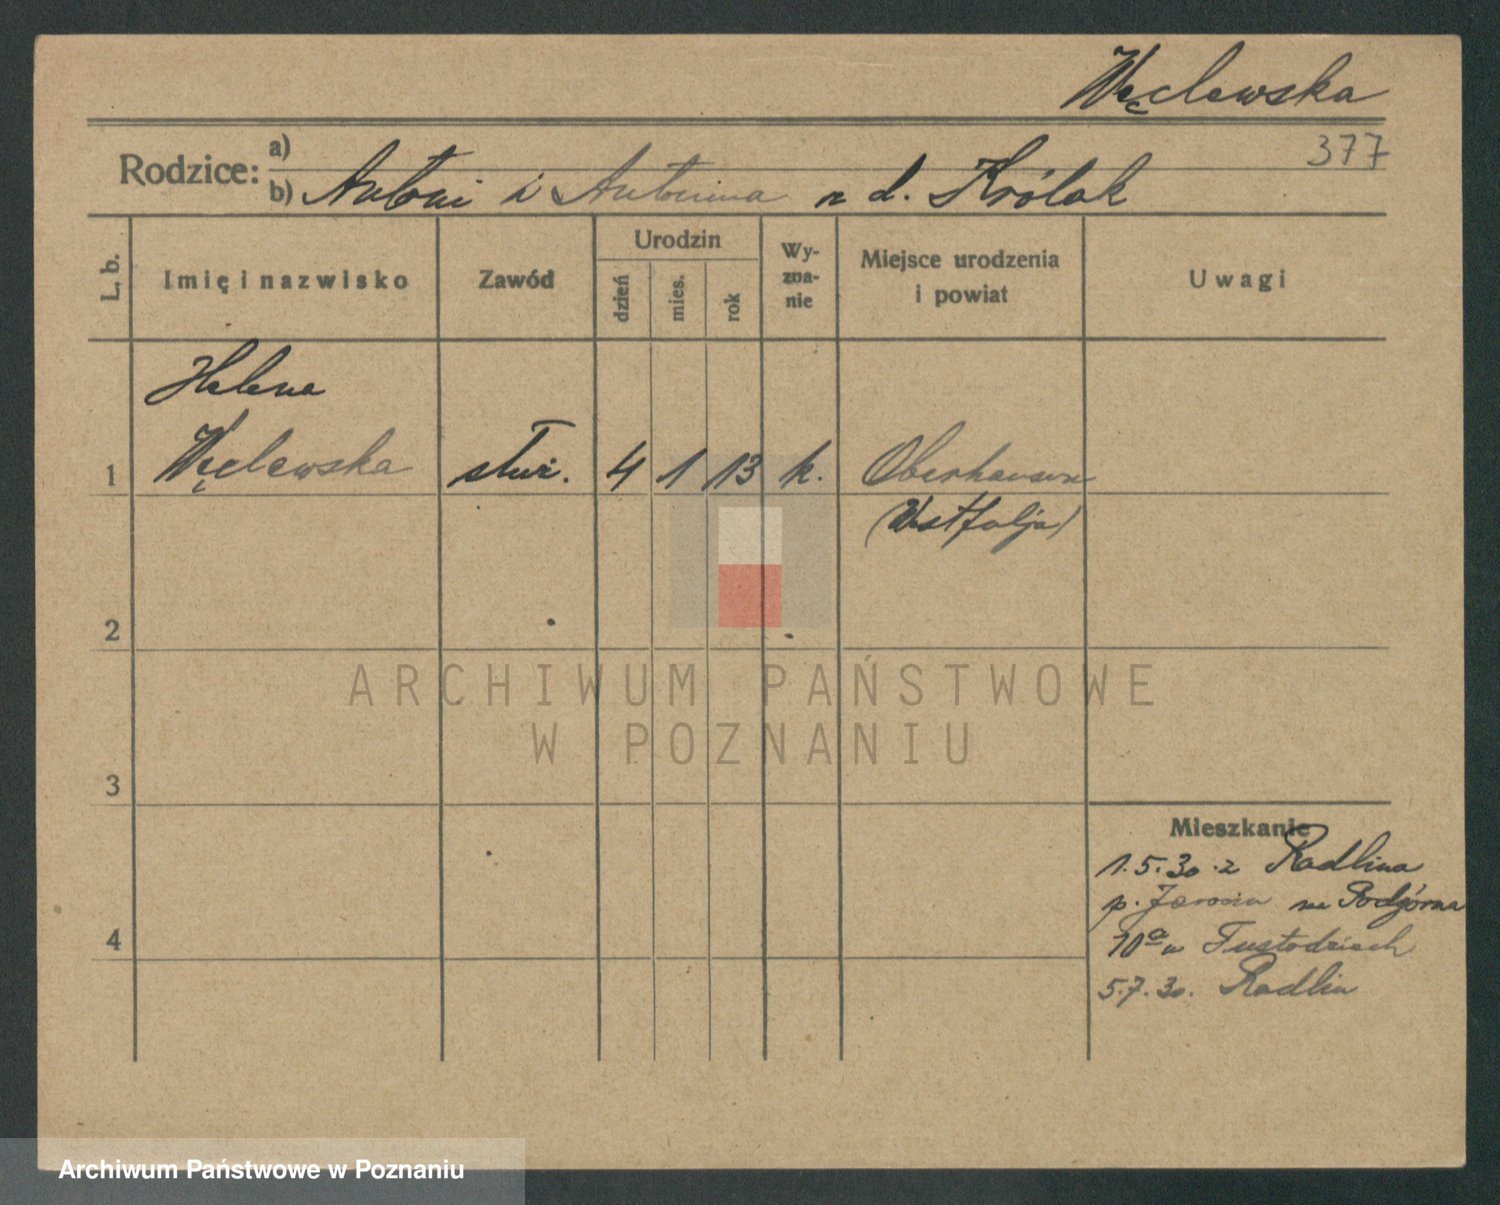 Węclewska
377
Rodzice:
a)
b) Antoni i Antonina z d. Królak
L. b.
Imię i nazwisko
Zawód
Urodzin
dzień
mies.
rok
Wy-
zna-
nie
Miejsce urodzenia
i powiat
Uwagi
Helena
1 Węclewska służ. 4 1 13 k. Oberhausen
(Westfalja)
2
3
4
Mieszkanie
1.5.30. z Radlina
p. Jarocin na Podgórna
10a w Tustodziach
5.7.30. Radlin
ARCHIWUM PAŃSTWOWE
W POZNANIU
Archiwum Państwowe w Poznaniu